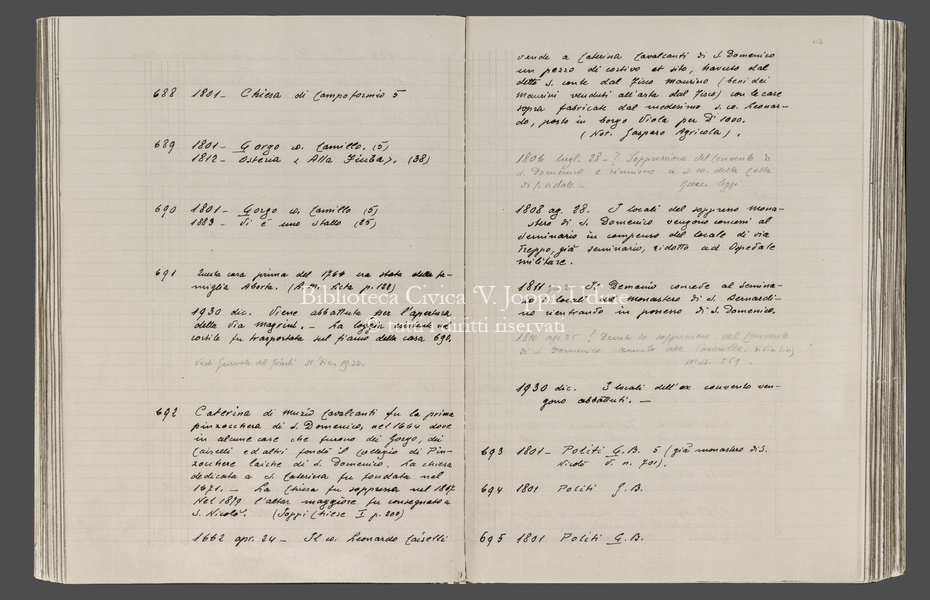 688 1801 - Chiesa di Campoformio 5
689 1801 - Gorgo co. Camillo. (5)
1812 - Osteria "Alla Fiuba". (38)
690 1801 - Gorgo co. Camillo (5)
1883 - Vi è uno stallo (85)
691 Questa casa prima del 1764 era stata della fa-
miglia Aborta. (A.M. Acta p. 188)
1930 dic. Viene abbattuta per l'apertura
della via Magrini. - La loggia esistente nel
cortile fu trasportata nel fianco della casa 690.
Vedi Giornale del Friuli 31 dic. 1930.
692 Caterina di Muzio Cavalcanti fu la prima
pinzochera di S. Domenico, nel 1664 dove
in alcune case che furono dei Gorgo, dei
Caiselli ed altri fondò il Collegio di Pin-
zochere laiche di S. Domenico. La chiesa
dedicata a S. Caterina fu fondata nel
1671. - La Chiesa fu soppressa nel 1817.
Nel 1819 l'altar maggiore fu consegnato a
S. Nicolò. (Joppi Chiese I p. 200)
1662 apr. 24 - Il co. Leonardo Caiselli
112
vende a Caterina Cavalcanti di S. Domenico
un pezzo di cortivo et sito, havuto dal
detto S. conte dal Fisco Maurino (beni dei
Maurini venduti all'asta dal Fisco) con le case
sopra fabricate dal medesimo S. co. Leonar-
do, posto in borgo Viola per D. 1000.
(Not. Gasparo Agricola).
1806 lugl. 28 - ? Soppressione del Convento di
S. Domenico e riunione a S. M. della Cella
di Cividale -
1808 ag. 28. I locali del soppresso mona-
stero di S. Domenico vengono concessi al
Seminario in compenso del locale di via
Treppo, già Seminario, ridotto ad Ospedale
militare.
1811 - Il Demanio concede al Semina-
rio i locali nel monastero di S. Bernardi-
no rientrando in possesso di S. Domenico.
1810 apr. 25 ? Decreto di soppressione del Convento
di S. Domenico
1930 dic. I locali dell'ex convento ven-
gono abbattuti. -
693 1801 - Politi G.B. 5 (già monastero di S.
Nicolò V. n. 701).
694 1801 Politi G.B.
695 1801 Politi G.B.
Biblioteca Civica "V. Joppi" Udine
© tutti i diritti riservati